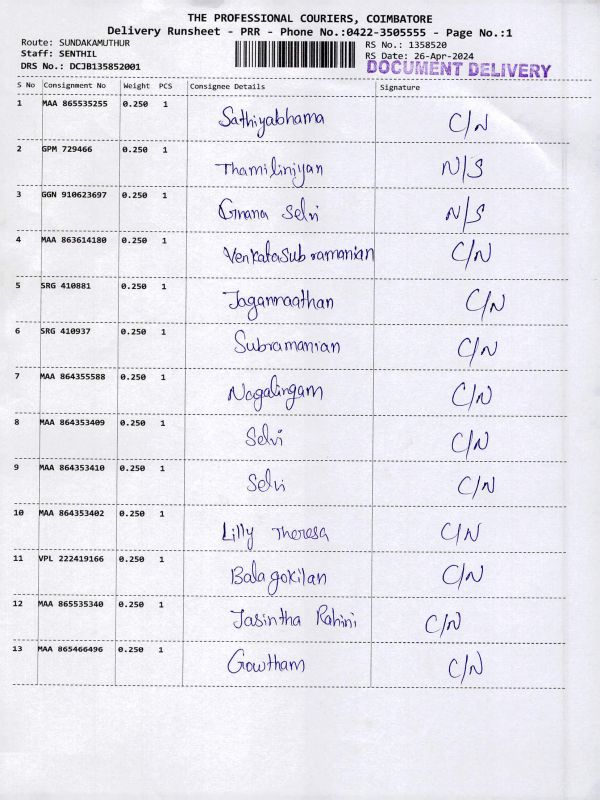 THE PROFESSIONAL COURIERS, COIMBATORE
Delivery Runsheet - PRR - Phone No.:0422-3505555 - Page No.:1
Route: SUNDAKAMUTHUR
Staff: SENTHIL
DRS No.: DCJB135852001
RS No.: 1358520
RS Date: 26-Apr-2024
DOCUMENT DELIVERY
S No Consignment No Weight PCS Consignee Details Signature
1 MAA 865535255 0.250 1 Sathiyabhama C/N
2 GPM 729466 0.250 1 Thamiliniyan N/S
3 GGN 910623697 0.250 1 Gnana Selvi N/S
4 MAA 863614180 0.250 1 Venkatasubramanian C/N
5 SRG 410881 0.250 1 Jagannaathan C/N
6 SRG 410937 0.250 1 Subramanian C/N
7 MAA 864355588 0.250 1 Nagalingam C/N
8 MAA 864353409 0.250 1 Selvi C/N
9 MAA 864353410 0.250 1 Selvi C/N
10 MAA 864353402 0.250 1 Lilly Theresa C/N
11 VPL 222419166 0.250 1 Balagokilan C/N
12 MAA 865535340 0.250 1 Jasintha Rahini C/N
13 MAA 865466496 0.250 1 Gowtham C/N